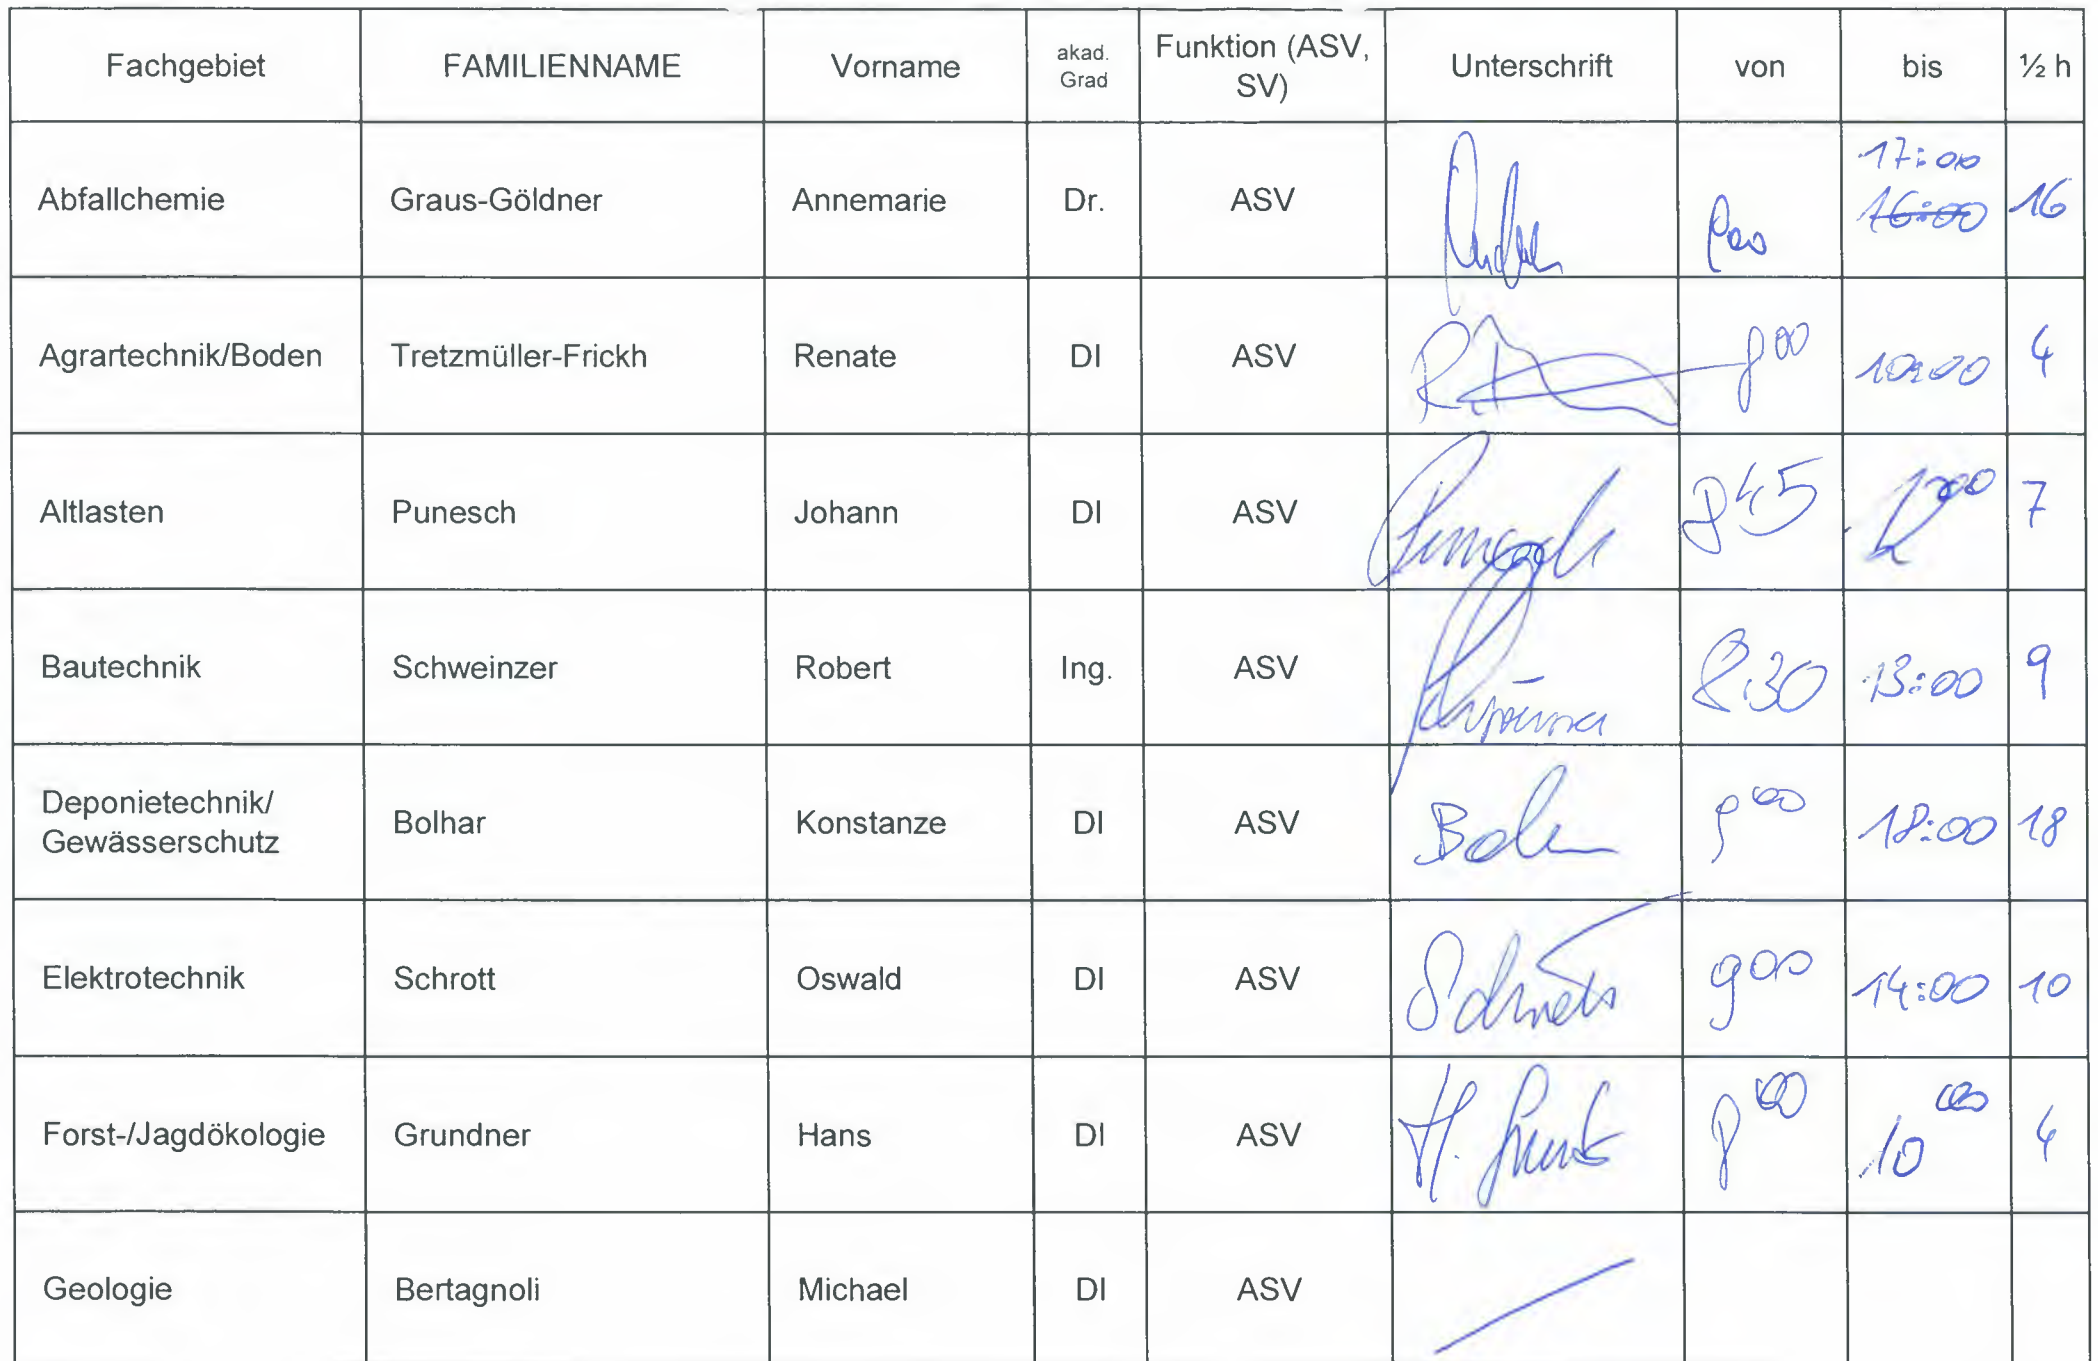 Fachgebiet FAMILIENNAME Vorname akad. Grad Funktion (ASV, SV) Unterschrift von bis ½ h
Abfallchemie Graus-Göldner Annemarie Dr. ASV 17:00 16:00 16
Agrartechnik/Boden Tretzmüller-Frickh Renate DI ASV 8 00 10:00 4
Altlasten Punesch Johann DI ASV 8 45 12 00 7
Bautechnik Schweinzer Robert Ing. ASV 8:30 13:00 9
Deponietechnik/
Gewässerschutz Bolhar Konstanze DI ASV 9 00 18:00 18
Elektrotechnik Schrott Oswald DI ASV 9 00 14:00 10
Forst-/Jagdökologie Grundner Hans DI ASV H. 8 00 10 00 4
Geologie Bertagnoli Michael DI ASV